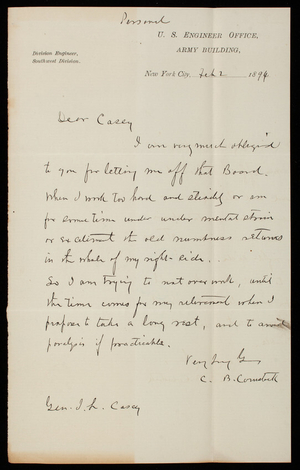 Personal
U. S. Engineer Office,
Army Building,
Division Engineer,
Southwest Division.
New York City, Feb 2 1894
Dear Casey
I am very much obliged
to you for letting me off that Board.
When I work too hard and steadily or am
for some time under under mental strain
or excitement the old numbness returns
in the whole of my right side.
So I am trying to not over work, until
the time comes for my retirement when I
propose to take a long rest, and to avoid
paralysis if practicable.
Very truly
C. B. Comstock
Gen. T. L. Casey